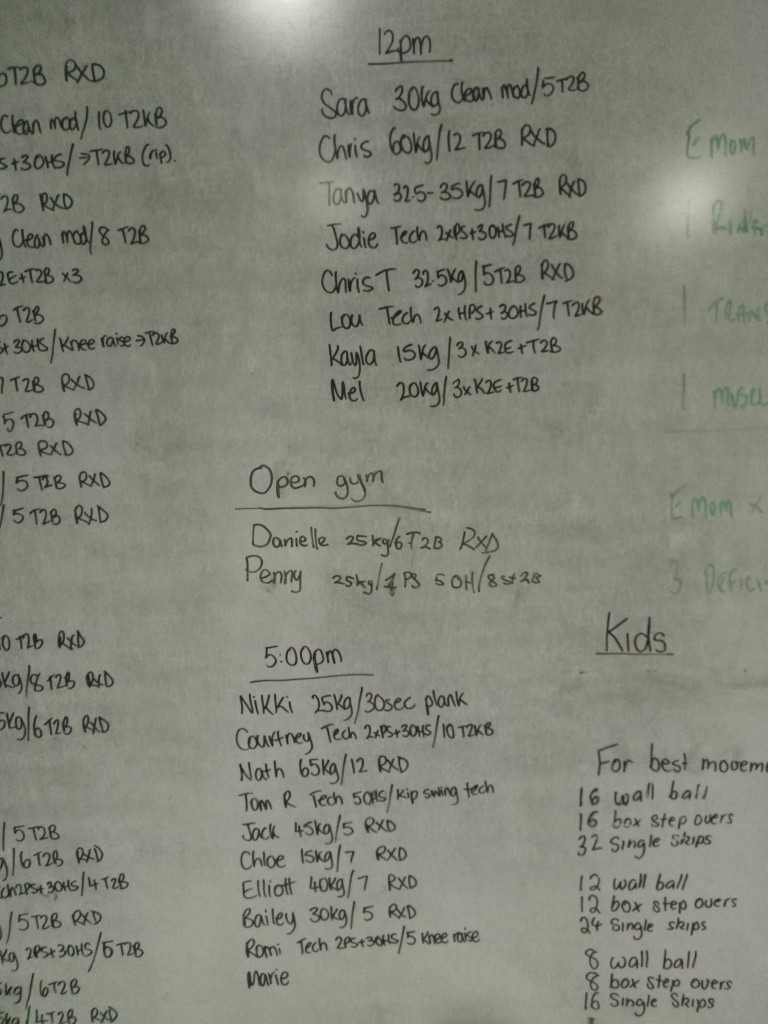 T2B RXD
Clean mod/10 T2KB
+30HS/→T2KB (rip).
2B RXD
Clean mod/8 T2B
2E+T2B x3
T2B
+30HS/Knee raise→T2KB
T2B RXD
5 T2B RXD
T2B RXD
/ 5 T2B RXD
/ 5 T2B RXD
0 T2B RXD
kg/8 T2B RXD
5kg/6 T2B RXD
/ 5T2B
g/6T2B RXD
ch 2PS+30HS/4 T2B
/5T2B RXD
kg 2PS+30HS/5 T2B
5kg/6T2B
5kg/4T2B RXD
12pm
Sara 30kg Clean mod/5T2B
Chris 60kg/12 T2B RXD
Tanya 32.5-35kg/7 T2B RXD
Jodie Tech 2xPS+30HS/7 T2KB
Chris T 32.5kg/5T2B RXD
Lou Tech 2xHPS+30HS/7 T2KB
Kayla 15kg/3x K2E+T2B
Mel 20kg/3xK2E+T2B
Open gym
Danielle 25kg/6 T2B RXD
Penny 25kg/1 PS 5 OH/8
5:00pm
Nikki 25kg/30sec plank
Courtney Tech 2xPS+30HS/10 T2KB
Nath 65kg/12 RXD
Tom R Tech 50HS/Kip swing tech
Jack 45kg/5 RXD
Chloe 15kg/7 RXD
Elliott 40kg/7 RXD
Bailey 30kg/5 RXD
Romi Tech 2PS+30HS/5 Knee raise
Marie
Emom
1 Ring
1 TRANS
1 MUSCL
Emom x
3 Defici
Kids
For best movem
16 wall ball
16 box step overs
32 Single Skips
12 wall ball
12 box step overs
24 Single skips
8 wall ball
8 box step overs
16 Single Skips